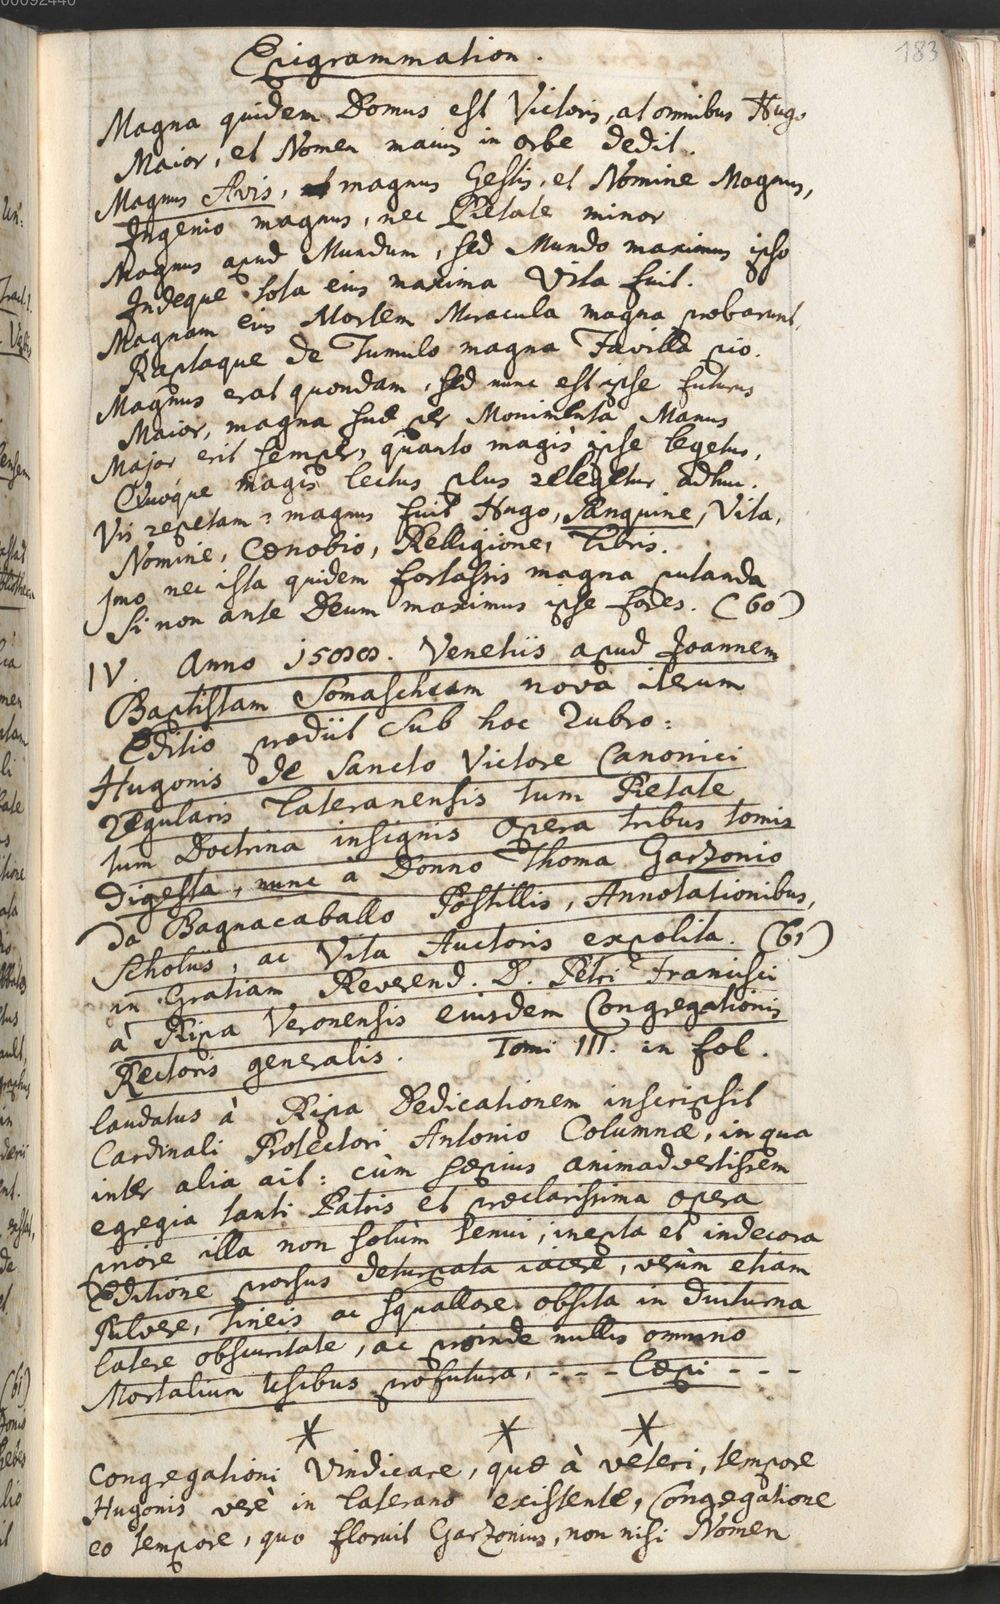 183
Epigrammation.
Magna quidem Domus est Victoris, at omnibus Hugo
Maior, et Nomen maius in orbe dedit.
Magnus Avis, magnus Gestis, et Nomine Magnus,
Ingenio magnus, nec Pietate minor
Magnus apud Mundum, sed Mundo maximus ipso
Indeque tota eius maxima Vita fuit.
Magnam eius Mortem Miracula magna probarunt,
Raptaque de Tumulo magna Favilla pio.
Magnus erat quondam, sed nunc est ipse futurus
Maior, magna suae per Monimenta Manus
Major erit semper, quanto magis ipse legetur,
Quoque magis lectus plus relegetur adhuc.
Vis repetam? magnus fuit Hugo, Sanguine, Vita,
Nomine, Coenobio, Relligione, Libris.
Imo nec ista quidem fortassis magna putanda
Si non ante Deum maximus ipse fores. (60)
IV. Anno 1588. Venetiis apud Joannem
Baptistam Somascheam nova iterum
Editio prodiit sub hoc Rubro:
Hugonis de Sancto Victore Canonici
regularis Lateranensis tum Pietate
tum Doctrina insignis opera tribus tomis
digesta, nunc à Donno Thoma Garzonio
da Bagnacaballo Postillis, Annotationibus,
Scholiis, ac Vita Auctoris expolita. (61)
in Gratiam Reverend. D. Petri Francisci
à Ripa Veronensis eiusdem Congregationis
Rectoris generalis. Tomi III. in fol.
laudatus à Ripa Dedicationem inscripsit
Cardinali Protectori Antonio Columnae, in qua
inter alia ait: cùm saepius animadvertissem
egregia tanti Patris et praeclarissima opera
priore illa non solùm tenui, inepta et indecora
Editione prorsus deturpata iacere, verùm etiam
Pulvere, tineis ac squallore obsita in diuturna
latere obscuritate, ac proinde nullis omnino
Mortalium Usibus profutura, - - - Coepi - - -
* * *
Congregationi Vindicare, quae à veteri, tempore
Hugonis verè in Laterano existente, Congregatione
eo tempore, quo floruit Garzonius, non nisi Nomen